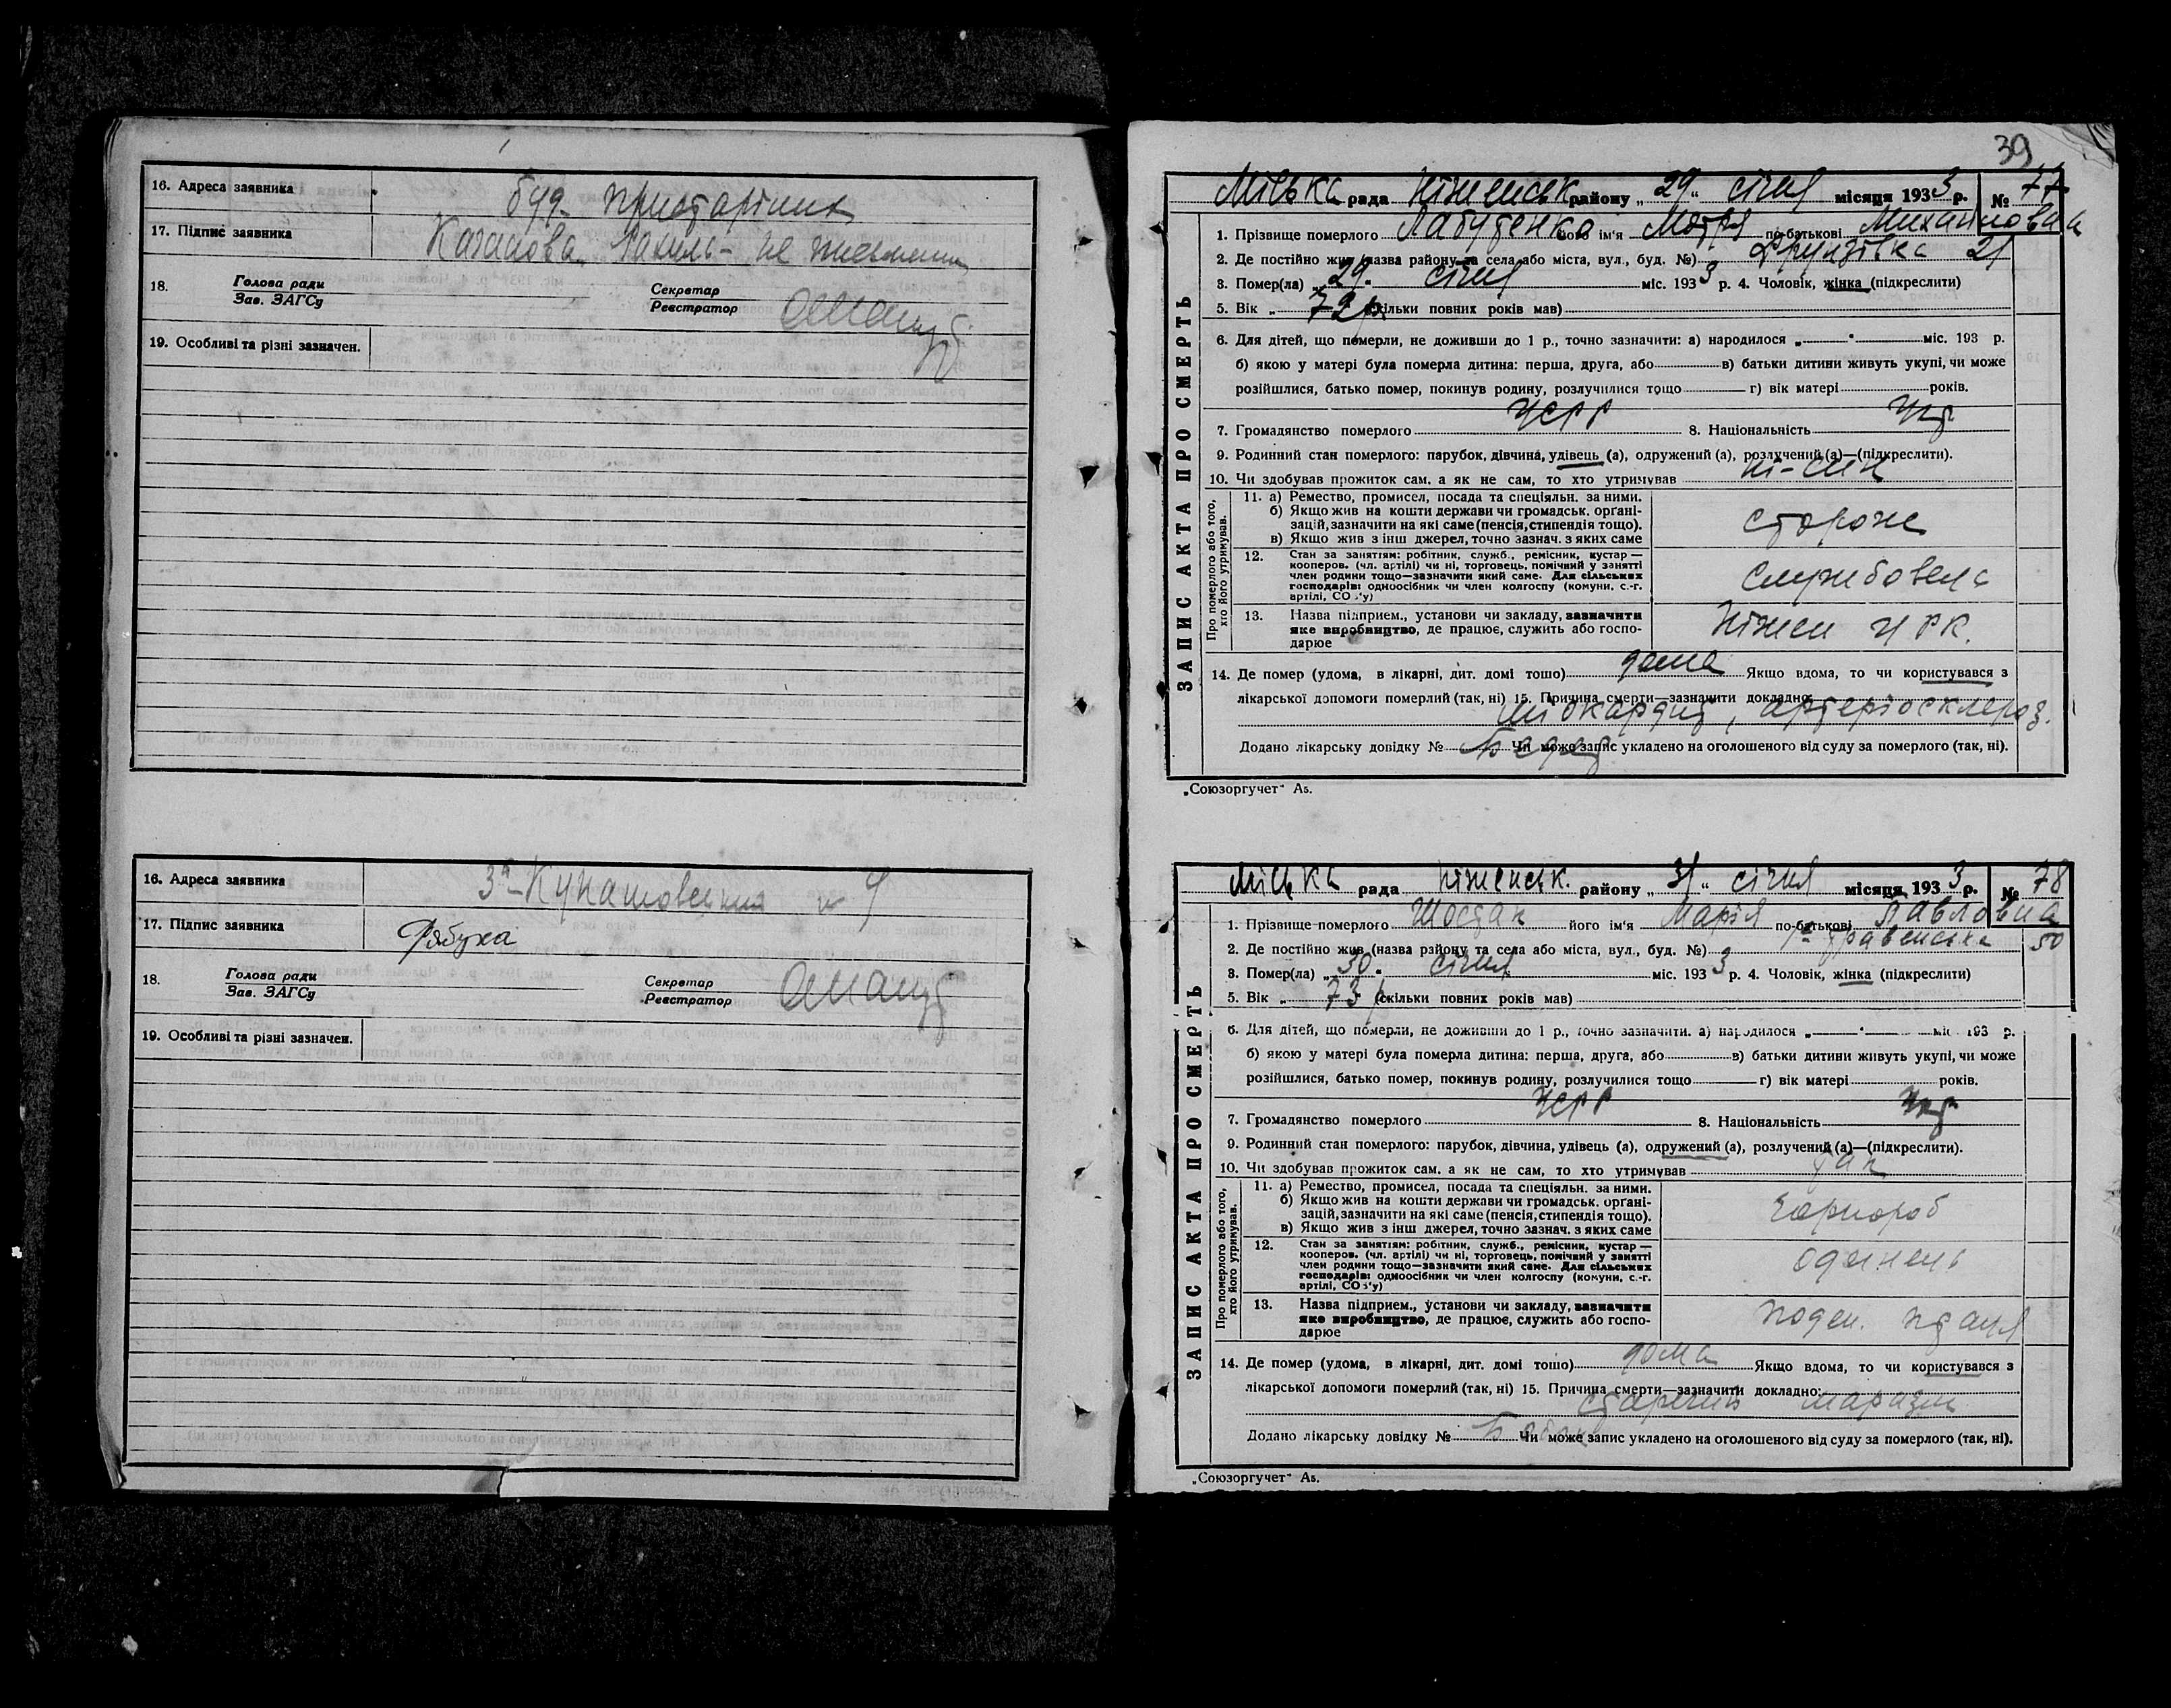 16. Адреса заявника
буд. престарілих
17. Підпис заявника
Казанова не письменна
18. Голова ради
Зав. ЗАГСу
Секретар
Реєстратор
19. Особливі та різні зазначен.
16. Адреса заявника
3а-Кунашовская 9
17. Підпис заявника
Рябуха
18. Голова ради
Зав. ЗАГСу
Секретар
Реєстратор
19. Особливі та різні зазначен.
39
Міська рада Ніженськ району „29" січня місяця 1933 р. № 77
ЗАПИС АКТА ПРО СМЕРТЬ
1. Прізвище померлого Лабутенко його ім'я Мотря по-батькові Михайловна
2. Де постійно жив (назва району та села або міста, вул., буд. №) Фрунзівка 21
3. Помер(ла) „29" січня міс. 1933 р. 4. Чоловік, жінка (підкреслити)
5. Вік „ 72 р. (скільки повних років мав)
6. Для дітей, що померли, не доживши до 1 р., точно зазначити: а) народилося „ " міс. 193 р.
б) якою у матері була померла дитина: перша, друга, або в) батьки дитини живуть укупі, чи може
розійшлися, батько помер, покинув родину, розлучилися тощо г) вік матері років.
7. Громадянство померлого УСРР 8. Національність Укр
9. Родинний стан померлого: парубок, дівчина, удівець (а), одружений (а), розлучений (а)—(підкреслити).
10. Чи здобував прожиток сам, а як не сам, то хто утримував ні-син
Про померлого або того, хто його утримував.
11. а) Ремество, промисел, посада та спеціяльн. за ними.
б) Якщо жив на кошти держави чи громадськ. орґані-
зацій, зазначити на які саме (пенсія, стипендія тощо).
в) Якщо жив з інш джерел, точно зазнач. з яких саме
сторож
12. Стан за заняттям: робітник, служб., ремісник, кустар —
кооперов. (чл. артілі) чи ні, торговець, помічний у занятті
член родини тощо—зазначити який саме. Для сільських
господарів: одноосібник чи член колгоспу (комуни, с.-г.
артілі, СОЗ'у)
службовець
13. Назва підприєм., установи чи закладу, зазначити
яке виробництво, де працює, служить або госпо-
дарює
Ніжен УРК.
14. Де помер (удома, в лікарні, дит. домі тощо) дома Якщо вдома, то чи користувався з
лікарської допомоги померлий (так, ні) 15. Причина смерти—зазначити докладно:
міокардит, артеріосклероз.
Додано лікарську довідку № Чи може запис укладено на оголошеного від суду за померлого (так, ні).
„Союзоргучет" А5.
Міська рада Ніженськ. району „31" січня місяця 1933 р. № 78
ЗАПИС АКТА ПРО СМЕРТЬ
1. Прізвище померлого Шостак його ім'я Марія по-батькові Павловна
2. Де постійно жив (назва району та села або міста, вул., буд. №) 50
3. Помер(ла) „30" січня міс. 1933 р. 4. Чоловік, жінка (підкреслити)
5. Вік „ 73 р (скільки повних років мав)
6. Для дітей, що померли, не доживши до 1 р., точно зазначити. а) народилося „ " міс 193 р.
б) якою у матері була померла дитина: перша, друга, або в) батьки дитини живуть укупі, чи може
розійшлися, батько помер, покинув родину, розлучилися тощо г) вік матері років.
7. Громадянство померлого УСРР 8. Національність Укр
9. Родинний стан померлого: парубок, дівчина, удівець (а), одружений (а), розлучений (а)—(підкреслити).
10. Чи здобував прожиток сам, а як не сам, то хто утримував так
Про померлого або того, хто його утримував.
11. а) Ремество, промисел, посада та спеціяльн. за ними.
б) Якщо жив на кошти держави чи громадськ. орґані-
зацій, зазначити на які саме (пенсія, стипендія тощо).
в) Якщо жив з інш джерел, точно зазнач. з яких саме
чорнороб
12. Стан за заняттям: робітник, служб., ремісник, кустар —
кооперов. (чл. артілі) чи ні, торговець, помічний у занятті
член родини тощо—зазначити який саме. Для сільських
господарів: одноосібник чи член колгоспу (комуни, с.-г.
артілі, СОЗ'у)
одинець
13. Назва підприєм., установи чи закладу, зазначити
яке виробництво, де працює, служить або госпо-
дарює
поден. праця
14. Де помер (удома, в лікарні, дит. домі тощо) дома Якщо вдома, то чи користувався з
лікарської допомоги померлий (так, ні) 15. Причина смерти—зазначити докладно:
старечий маразм
Додано лікарську довідку № Чи може запис укладено на оголошеного від суду за померлого (так, ні).
„Союзоргучет" А5.